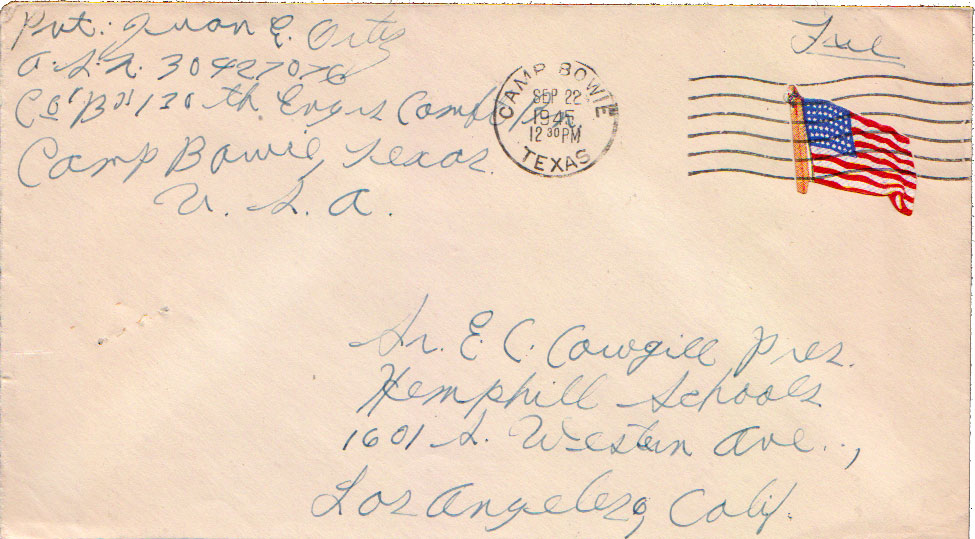 Pvt. Juan E. Ortiz
A.S.N. 30427076
Co "B" 130th Engrs
Camp Bowie, Texas.
U. S. A.
CAMP BOWIE
SEP 22
1945
12 30 PM
TEXAS
Free
Sr. E. C. Cowgill Pres.
Hemphill Schools
1601 S. Western Ave.,
Los Angeles, Calif.